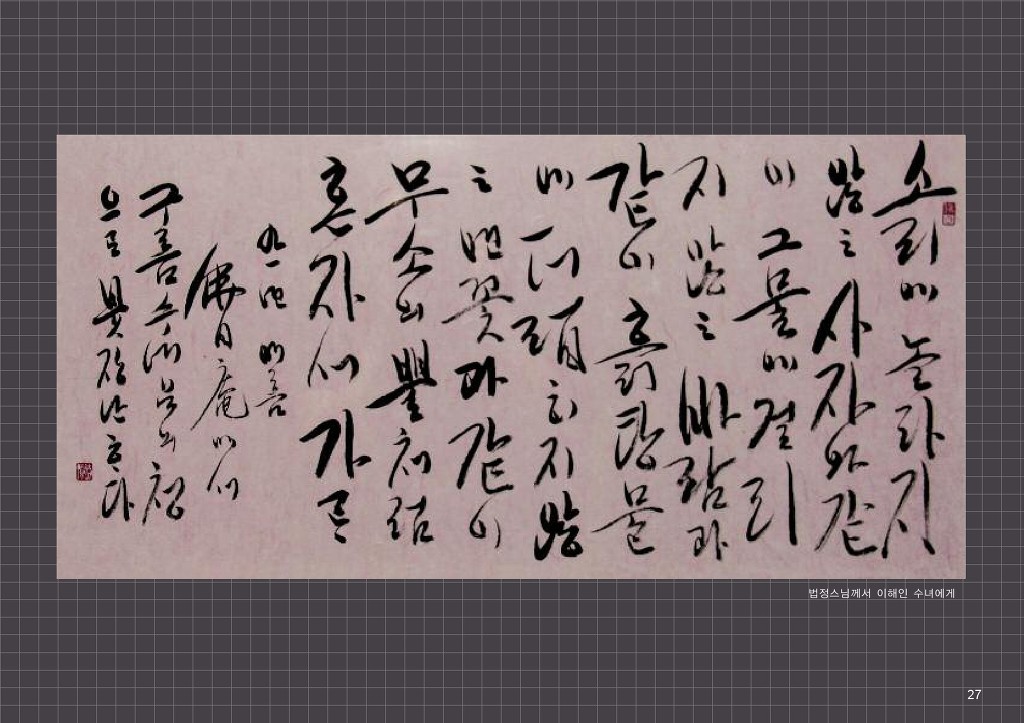 소리에 놀라지
않는 사자와 같
이 그물에 걸리
지 않는 바람과
같이 흙탕물
에 더럽히지 않
는 연꽃과 같이
무소의 뿔처럼
혼자서 가라
九一년 여름
佛日庵에서
구름수녀님의 청
으로 붓장난하다
법정스님께서 이해인 수녀에게
27